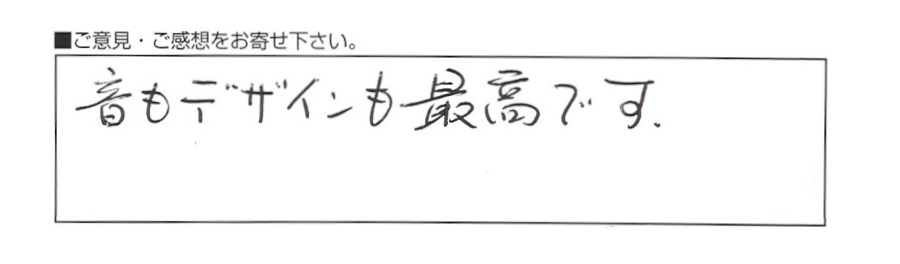 ■ご意見・ご感想をお寄せ下さい。
音もデザインも最高です.